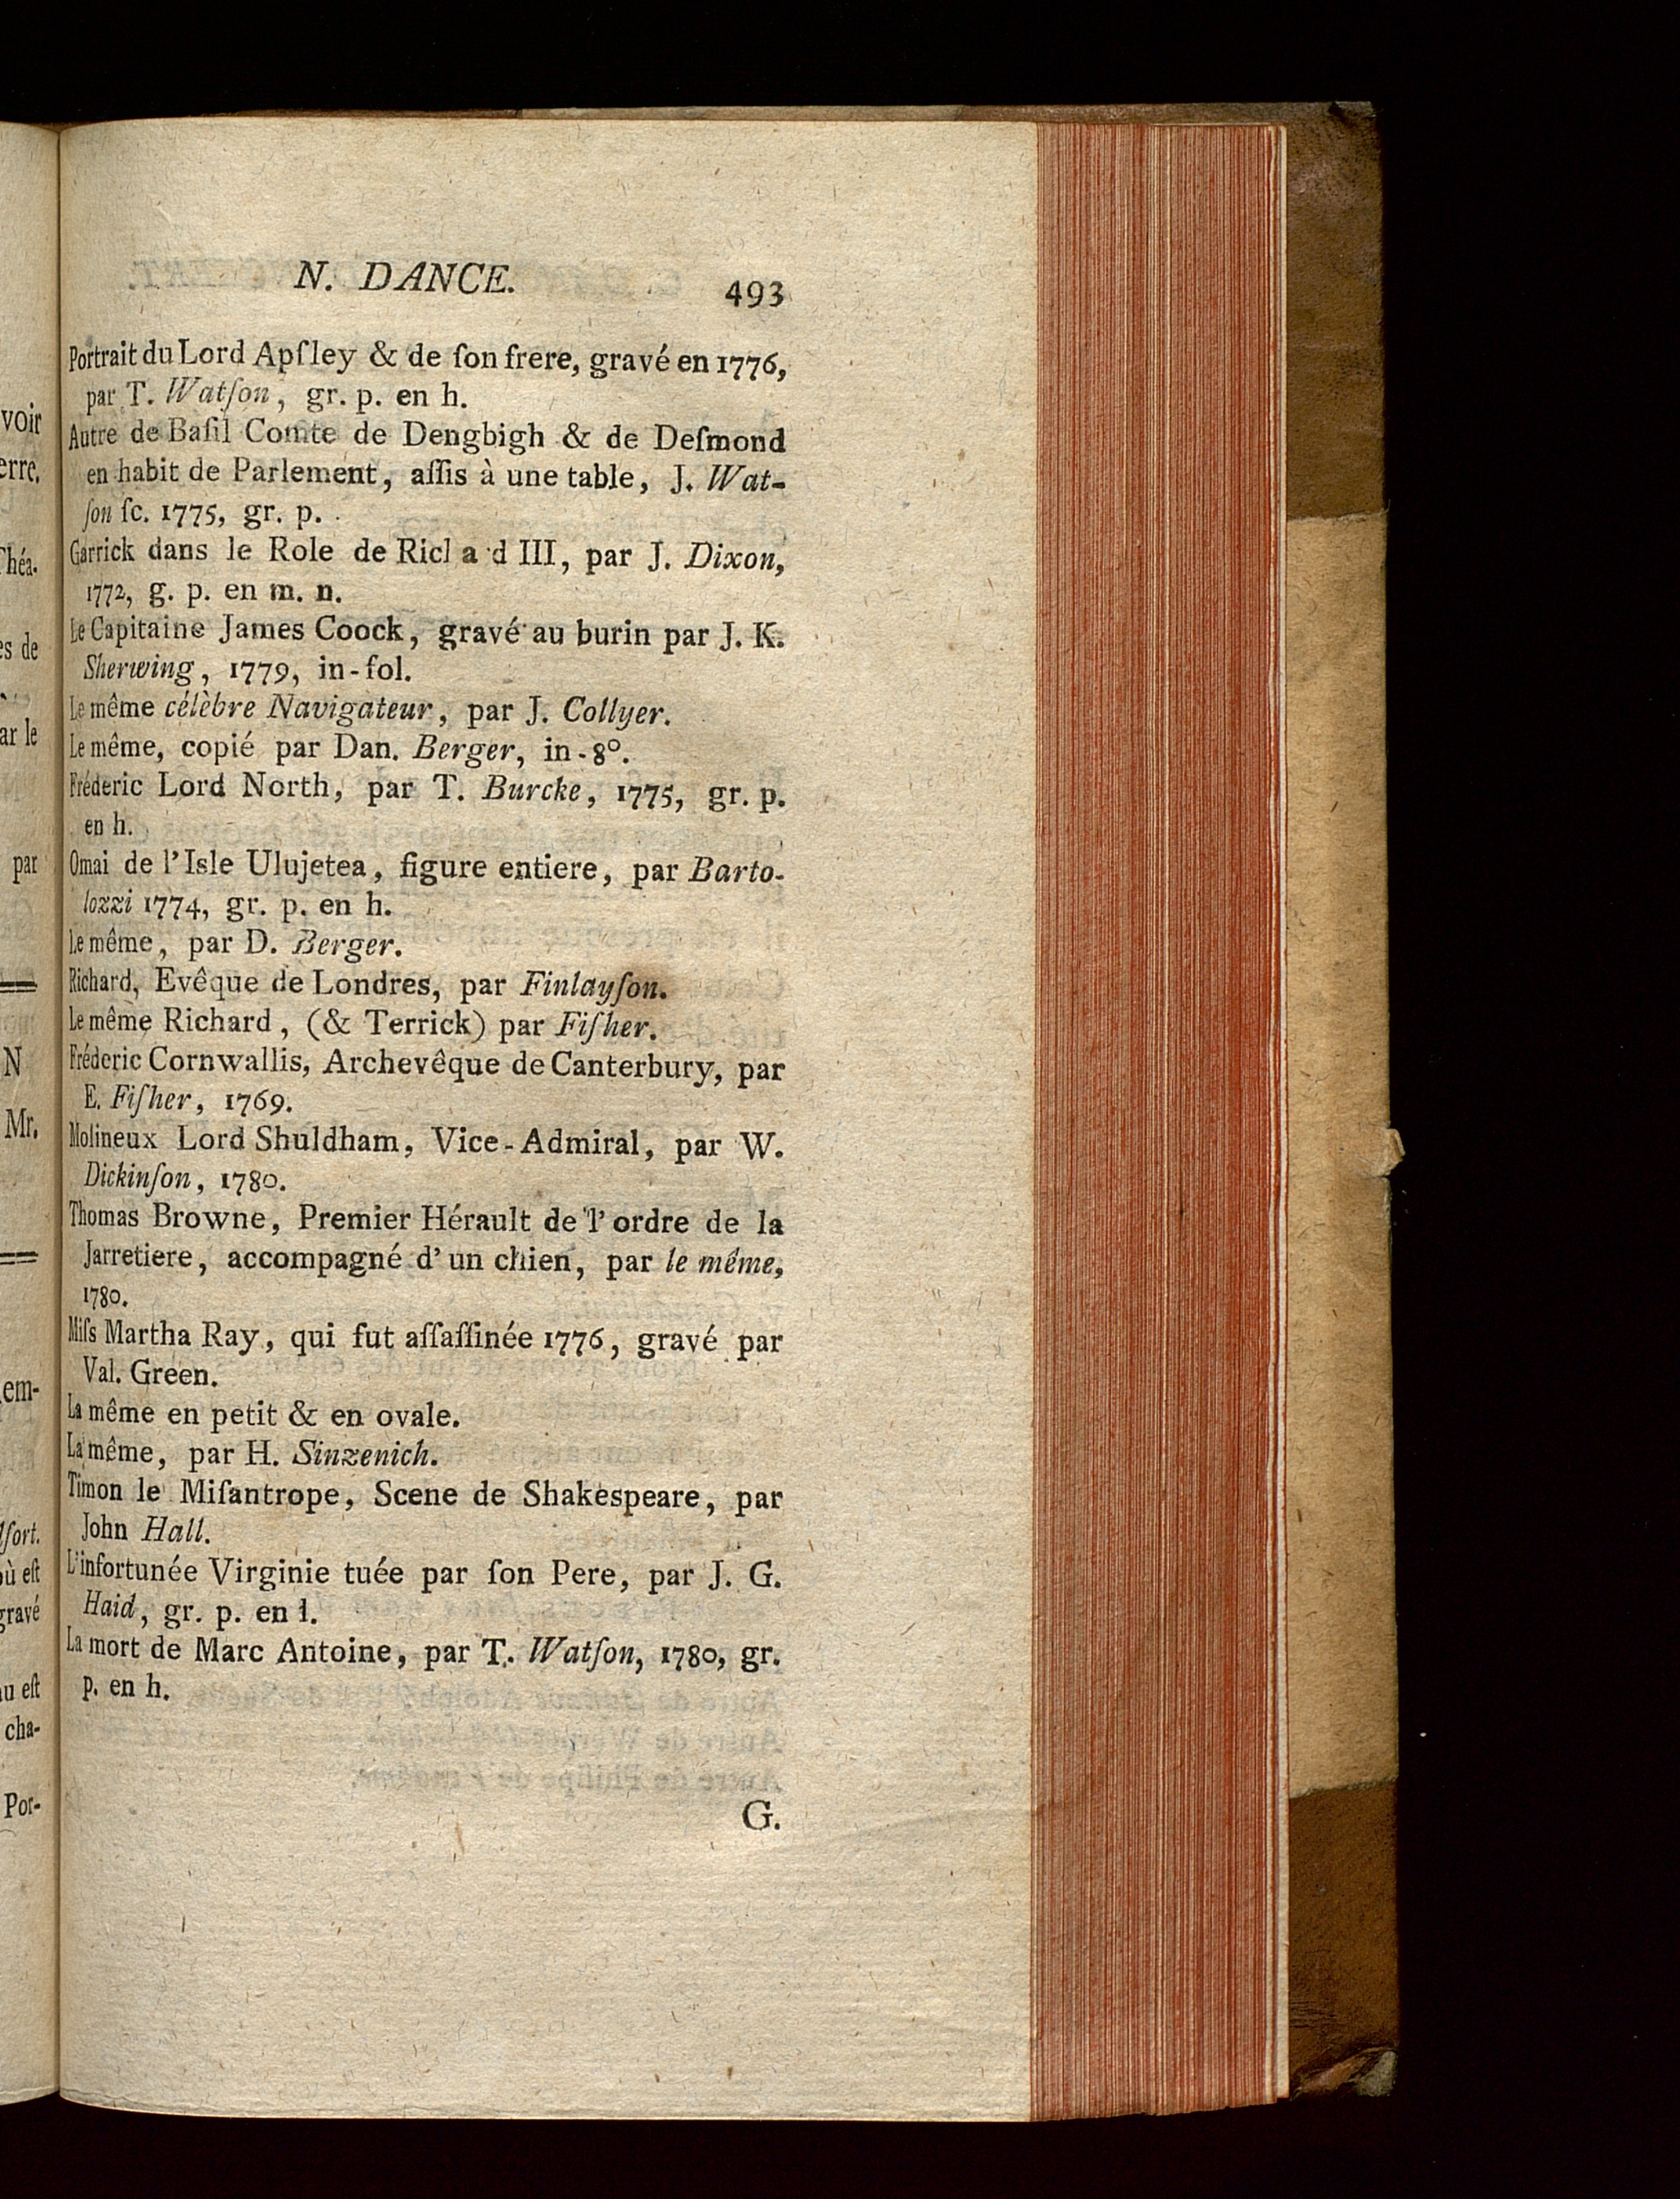 N. DANCE. 493
Portrait du Lord Apſley & de ſon frere, gravé en 1776,
par T. Watſon, gr. p. en h.
Autre de Baſil Comte de Dengbigh & de Deſmond
en habit de Parlement, aſſis à une table, J. Wat-
ſon ſc. 1775, gr. p.
Garrick dans le Role de Ricl a d III, par J. Dixon,
1772, g. p. en m. n.
Le Capitaine James Coock, gravé au burin par J. K.
Sherwing, 1779, in-fol.
Le même célèbre Navigateur, par J. Collyer.
Le même, copié par Dan. Berger, in-8°.
Fréderic Lord North, par T. Burcke, 1775, gr. p.
en h.
Omai de l'Isle Ulujetea, figure entiere, par Barto-
lozzi 1774, gr. p. en h.
Le même, par D. Berger.
Richard, Evêque de Londres, par Finlayſon.
Le même Richard, (& Terrick) par Fiſher.
Fréderic Cornwallis, Archevêque de Canterbury, par
E. Fiſher, 1769.
Molineux Lord Shuldham, Vice-Admiral, par W.
Dickinſon, 1780.
Thomas Browne, Premier Hérault de l'ordre de la
Jarretiere, accompagné d'un chien, par le même,
1780.
Miſs Martha Ray, qui fut aſſaſſinée 1776, gravé par
Val. Green.
La même en petit & en ovale.
La même, par H. Sinzenich.
Timon le Miſantrope, Scene de Shakespeare, par
John Hall.
L'infortunée Virginie tuée par ſon Pere, par J. G.
Haid, gr. p. en l.
La mort de Marc Antoine, par T. Watſon, 1780, gr.
p. en h.
G.
voir
erre.
Théa-
es de
ar le
par
N
Mr.
em-
où eſt
gravé
au eſt
cha-
Por-